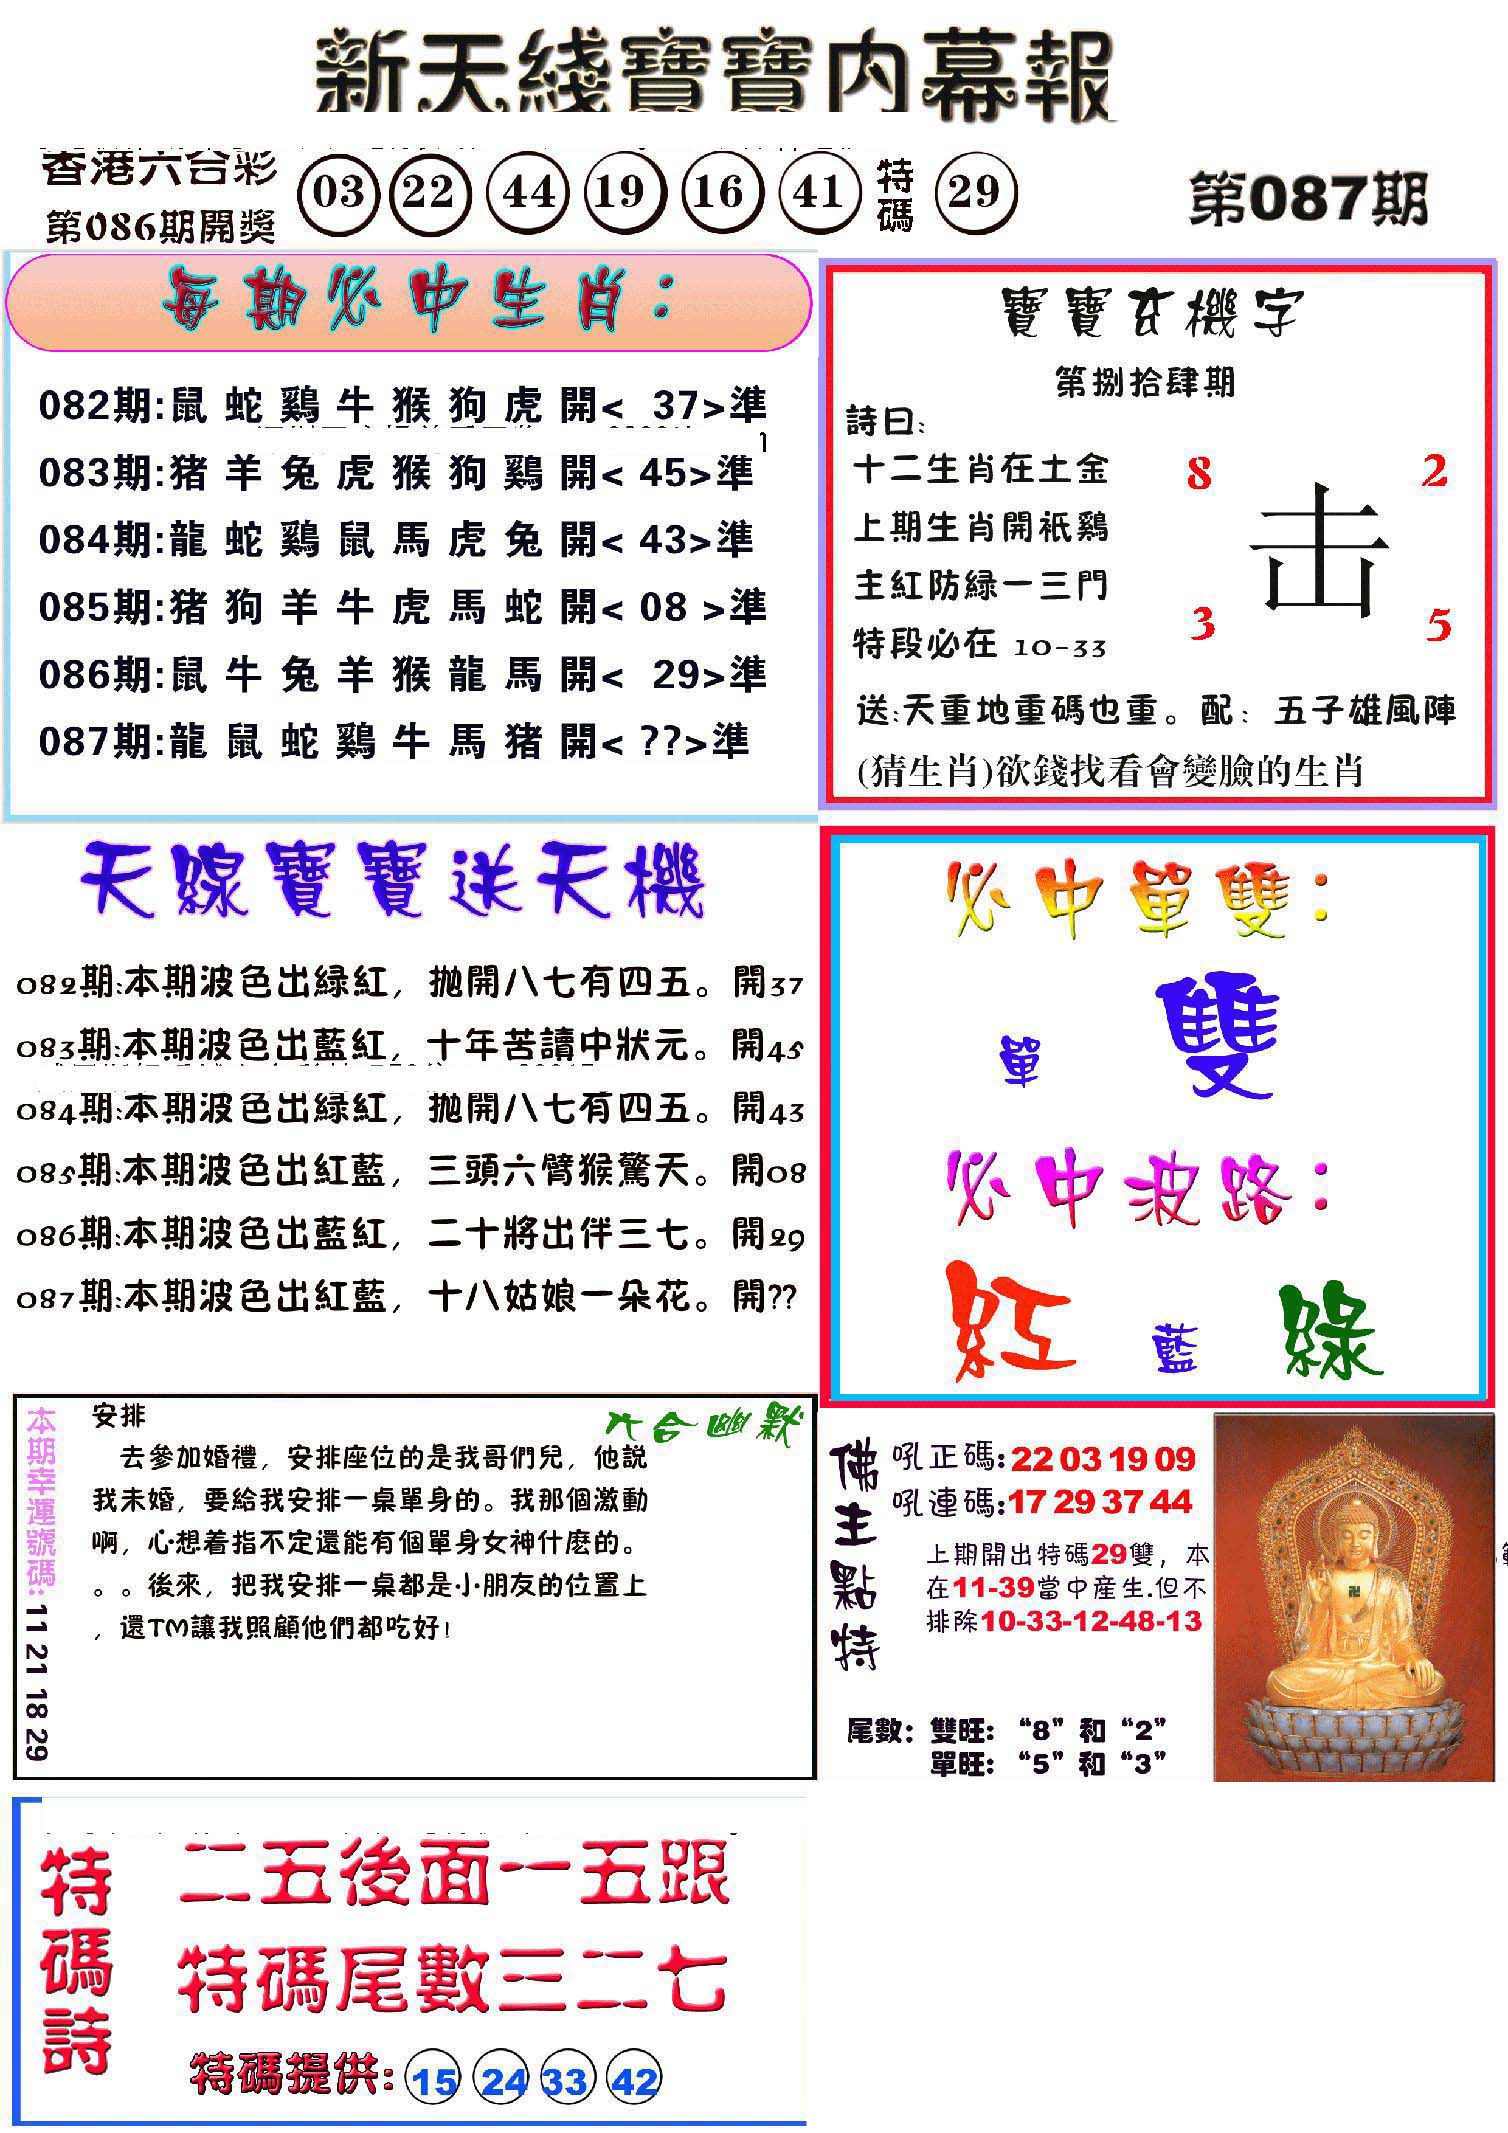 新天綫寶寶内幕報
香港六合彩
第086期開獎
03 22 44 19 16 41 特碼 29
第087期
每期必中生肖：
082期:鼠 蛇 鷄 牛 猴 狗 虎 開< 37>準
083期:猪 羊 兔 虎 猴 狗 鷄 開< 45>準
084期:龍 蛇 鷄 鼠 馬 虎 兔 開< 43>準
085期:猪 狗 羊 牛 虎 馬 蛇 開< 08 >準
086期:鼠 牛 兔 羊 猴 龍 馬 開< 29>準
087期:龍 鼠 蛇 鷄 牛 馬 猪 開< ??>準
寶寶玄機字
第捌拾肆期
詩曰:
十二生肖在土金
上期生肖開衹鷄
主紅防緑一三門
特段必在 10-33
8 2
击
3 5
送:天重地重碼也重。配：五子雄風陣
(猜生肖)欲錢找看會變臉的生肖
天線寶寶送天機
082期:本期波色出緑紅，抛開八七有四五。開37
083期:本期波色出藍紅，十年苦讀中狀元。開45
084期:本期波色出緑紅，抛開八七有四五。開43
085期:本期波色出紅藍，三頭六臂猴驚天。開08
086期:本期波色出藍紅，二十將出伴三七。開29
087期:本期波色出紅藍，十八姑娘一朵花。開??
必中單雙：
單 雙
必中波路：
紅 藍 綠
本期幸運號碼:11 21 18 29
六合幽默
安排
去參加婚禮，安排座位的是我哥們兒，他説
我未婚，要給我安排一桌單身的。我那個激動
啊，心想着指不定還能有個單身女神什麽的。
。。後來，把我安排一桌都是小朋友的位置上
，還TM讓我照顧他們都吃好!
佛主點特
吼正碼:22 03 19 09
吼連碼:17 29 37 44
上期開出特碼29雙，本
在11-39當中産生.但不
排除10-33-12-48-13
尾數：雙旺：“8”和“2”
單旺：“5”和“3”
特碼詩
二五後面一五跟
特碼尾數三二七
特碼提供: 15 24 33 42